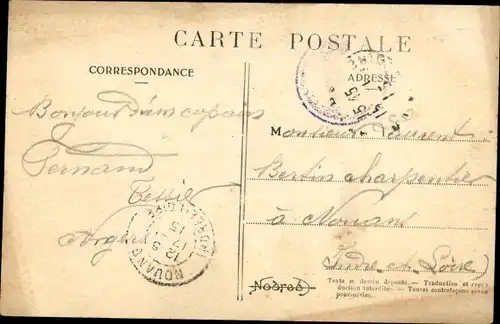 CARTE POSTALE
CORRESPONDANCE
ADRESSE
Bonjour d'un copain
Fernand
Tessier
Argent
Monsieur Laurent
Bertin charpentier
à Nouans
Indre et Loire
NOUANS
15
Texte et dessin déposés. — Traduction et repro-
duction interdites. — Toutes contrefaçons seront
poursuivies.